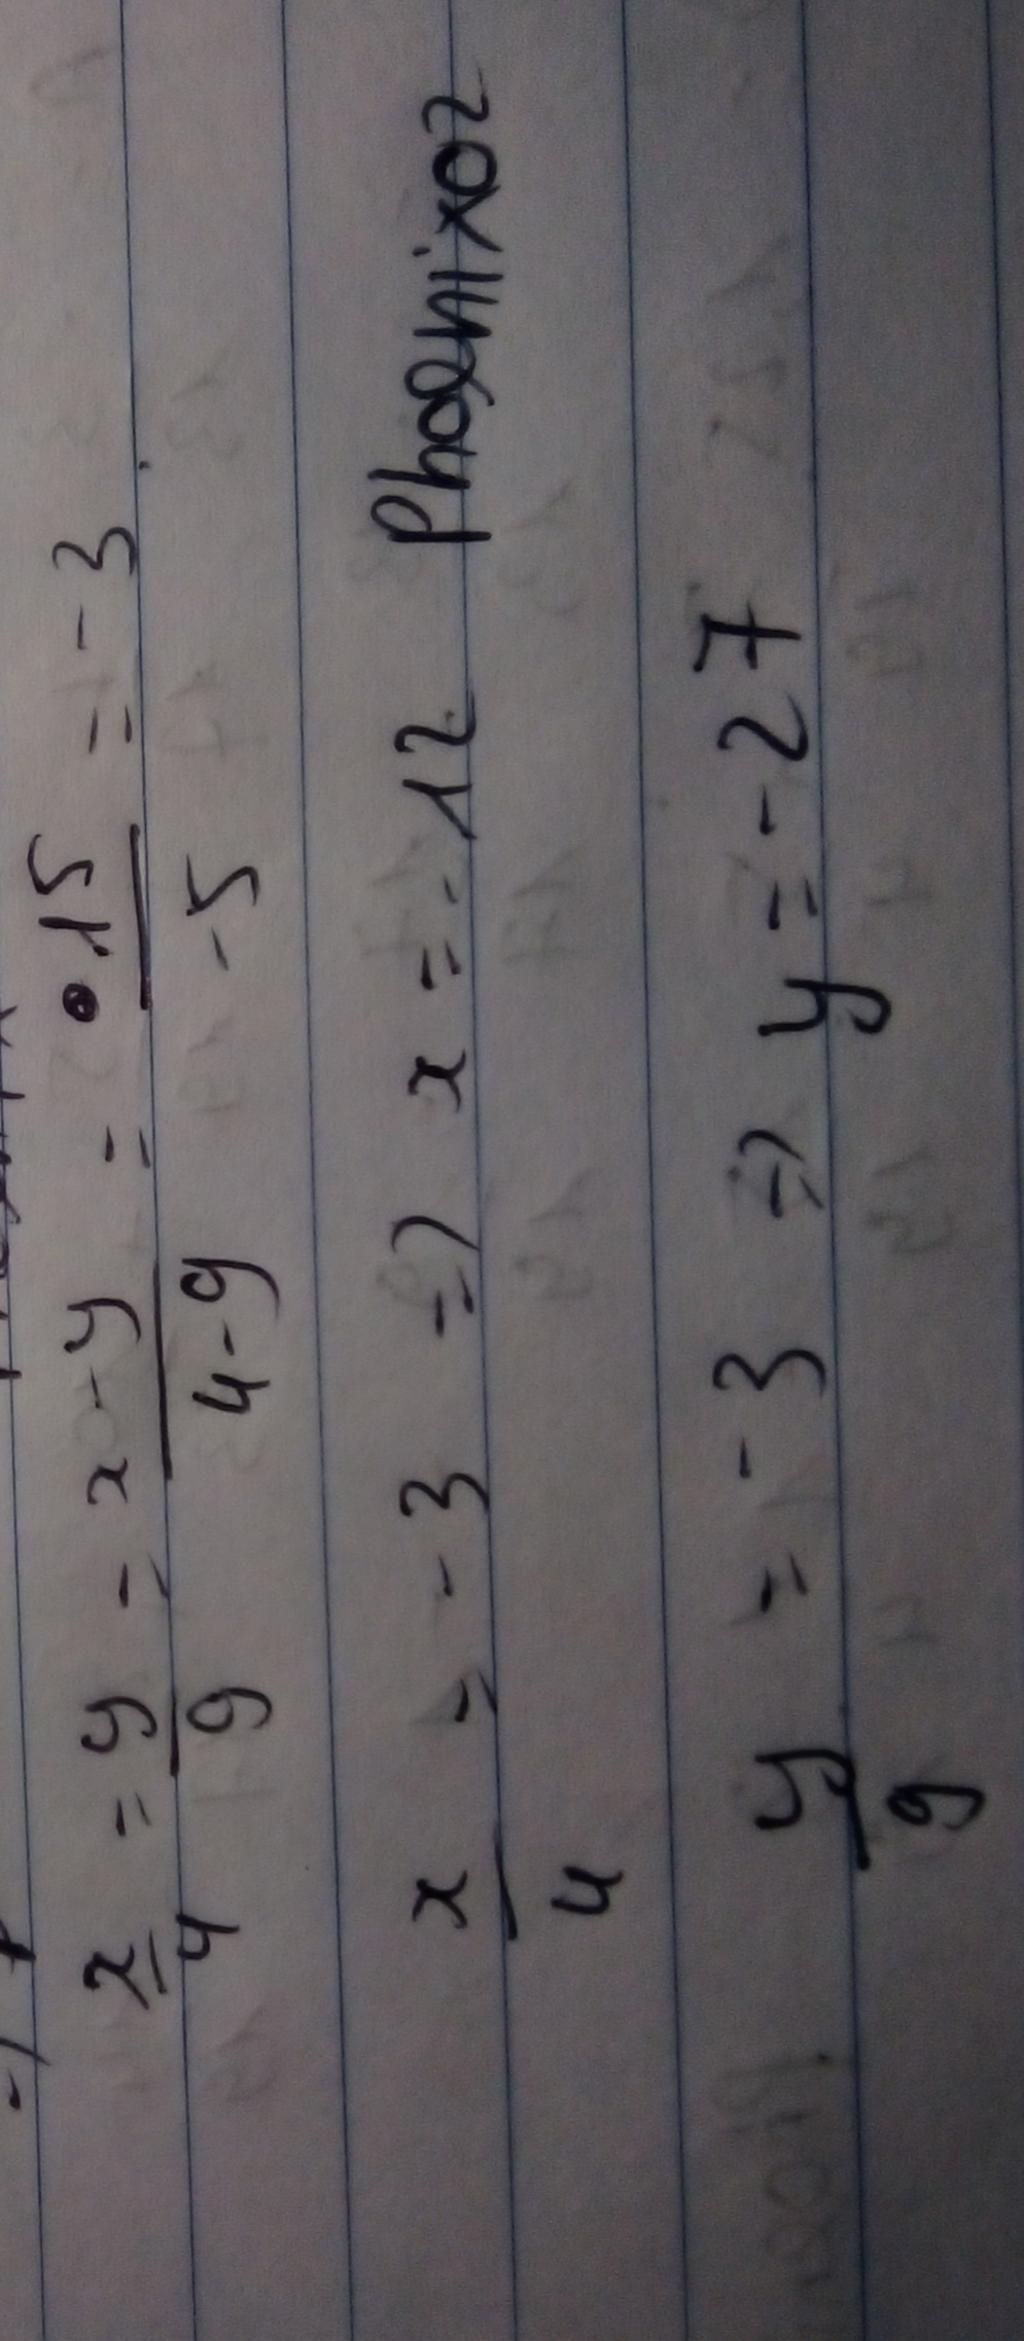 x/4 = y/9 = x-y/4-9 = 15/-5 = -3
x/4 = -3 => x = -12 Phoenix02
y/9 = -3 => y = -27